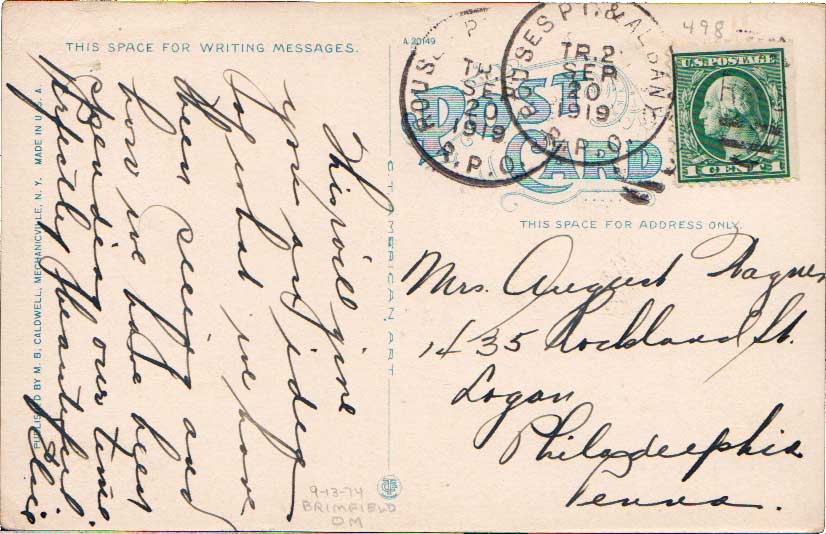 THIS SPACE FOR WRITING MESSAGES.
This will give
you an idea
of what we have
been seeing and
how we have been
spending our time
perfectly beautiful.
Elsie
PUBLISHED BY M. B. CALDWELL, MECHANICVILLE, N. Y. MADE IN U. S. A.
C.T. AMERICAN ART
9-13-74
BRIMFIELD
DM
A 20149
POST
CARD
ROUSES P
TR.
SEP
20
1919
R.P.O.
ROUSES PT. & ALBANY
TR.2
SEP
20
1919
R.P.O.
498
U.S. POSTAGE
1 CENT 1
THIS SPACE FOR ADDRESS ONLY.
Mrs. August Wagner
1435 Rockland St.
Logan
Philadelphia
Penna.